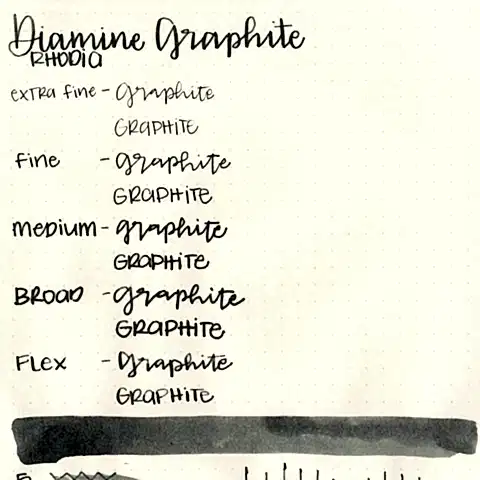 Diamine Graphite
RHODIA
extra fine - graphite
GRAPHITE
fine - graphite
GRAPHITE
medium - graphite
GRAPHITE
BROAD - graphite
GRAPHITE
FLEX - graphite
GRAPHITE